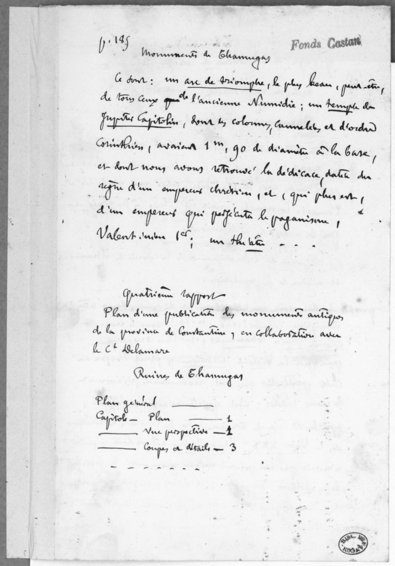 p. 185
Fonds Castan
Monuments de Thamugas
Ce sont : un arc de triomphe, le plus beau, peut-être,
de tous ceux de l'ancienne Numidie ; un temple de
Jupiter Capitolin, dont les colonnes, cannelées et d'ordre
Corinthien, avaient 1m,90 de diamètre à la base,
et dont nous avons retrouvé la dédicace, datée du
règne d'un empereur chrétien, et, qui plus est,
d'un empereur qui persécuta le paganisme,
Valentinien 1er ; un théâtre - - - -
Quatrième rapport
Plan d'une publication des monuments antiques
de la province de Constantine, en collaboration avec
le Ct Delamare
Ruines de Thamugas
Plan général
Capitole — Plan — 1
Vue perspective — 1
Coupes et détails — 3